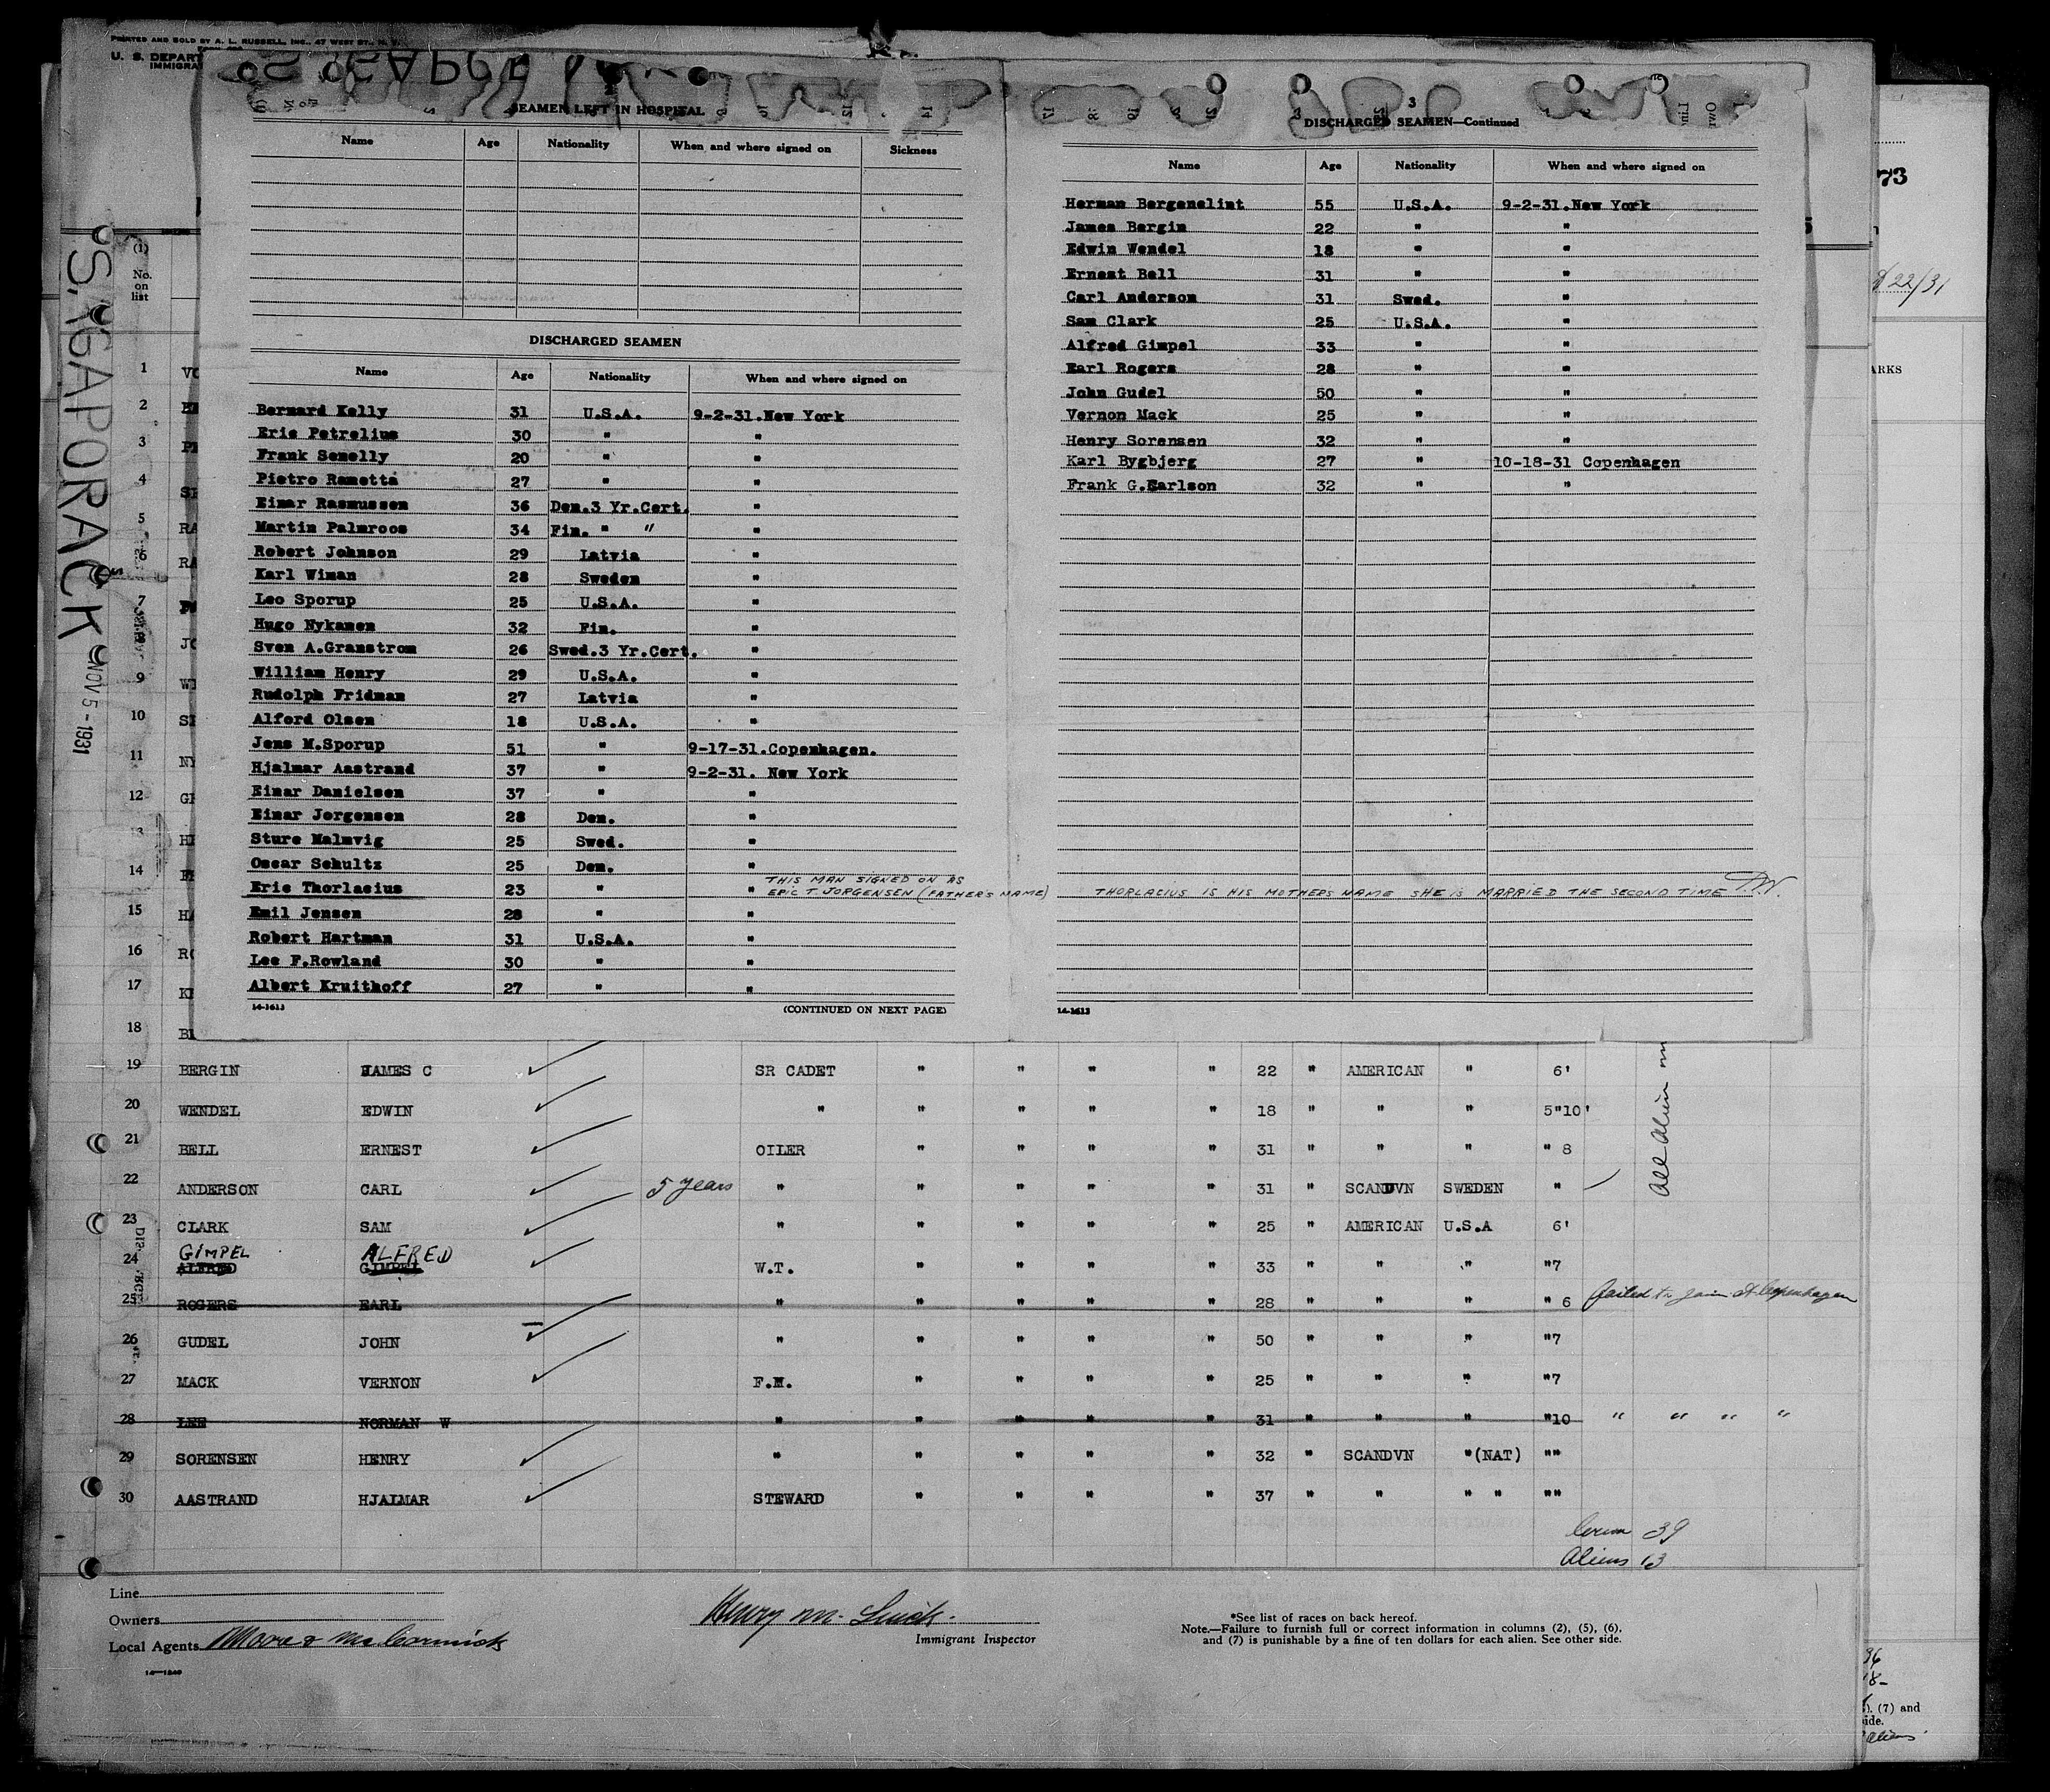 PRINTED AND SOLD BY A. L. RUSSELL, INC., 47 WEST ST., N. Y.
U. S. DEPART
IMMIGRA
SEAMEN LEFT IN HOSPITAL
Name Age Nationality When and where signed on Sickness
DISCHARGED SEAMEN
Name Age Nationality When and where signed on
Bernard Kelly 31 U.S.A. 9-2-31.New York
Eric Petrelius 30 " "
Frank Semelly 20 " "
Pietro Rametta 27 " "
Einar Rasmussen 36 Den.3 Yr.Cert. "
Martin Palmroos 34 Fin. " " "
Robert Johnson 29 Latvia "
Karl Wiman 28 Sweden "
Leo Sporup 25 U.S.A. "
Hugo Nykanen 32 Fin. "
Sven A.Granstrom 26 Swed.3 Yr.Cert. "
William Henry 29 U.S.A. "
Rudolph Fridman 27 Latvia "
Alford Olsen 18 U.S.A. "
Jens M.Sporup 51 " 9-17-31.Copenhagen.
Hjalmar Aastrand 37 " 9-2-31. New York
Einar Danielsen 37 " "
Einar Jorgensen 28 Den. "
Sture Malmvig 25 Swed. "
Oscar Schultz 25 Den. "
Eric Thorlacius 23 " " THIS MAN SIGNED ON AS
ERIC T. JORGENSEN (FATHER'S NAME) THORLACIUS IS HIS MOTHERS NAME SHE IS MARRIED THE SECOND TIME
Emil Jensen 28 " "
Robert Hartman 31 U.S.A. "
Lee F.Rowland 30 " "
Albert Kruithoff 27 " "
14-1613 (CONTINUED ON NEXT PAGE)
3
DISCHARGED SEAMEN—Continued
Name Age Nationality When and where signed on
Herman Bergenelint 55 U.S.A. 9-2-31.New York
James Bergin 22 " "
Edwin Wendel 18 " "
Ernest Bell 31 " "
Carl Anderson 31 Swed. "
Sam Clark 25 U.S.A. "
Alfred Gimpel 33 " "
Earl Rogers 28 " "
John Gudel 50 " "
Vernon Mack 25 " "
Henry Sorensen 32 " "
Karl Bygbjerg 27 " 10-18-31 Copenhagen
Frank G.Carlson 32 " "
14-1613
73
22/31
ARKS
SAGAPORACK
NOV 5 - 1931
(1)
No.
on
list
1 VO
2
3
4
5 RA
6 RA
7
JO
9
10
11 NY
12
13
14
15 HA
16 RO
17
18
19 BERGIN JAMES C SR CADET " " " " 22 " AMERICAN " 6'
20 WENDEL EDWIN " " " " " 18 " " " 5"10'
21 BELL ERNEST OILER " " " " 31 " " " " 8
22 ANDERSON CARL 5 years " " " " " 31 " SCANDVN SWEDEN "
23 CLARK SAM " " " " " 25 " AMERICAN U.S.A 6'
GIMPEL ALFRED
24 ALFRED GIMPEL W.T. " " " " 33 " " " "7
25 ROGERS EARL " " " " " 28 " " " " 6 failed to join at Copenhagen
26 GUDEL JOHN " " " " " 50 " " " "7
27 MACK VERNON F.M. " " " " 25 " " " "7
28 LEE NORMAN W " " " " " 31 " " " "10 " " " "
29 SORENSEN HENRY " " " " " 32 " SCANDVN "(NAT) ""
30 AASTRAND HJALMAR STEWARD " " " " 37 " " " " ""
All Alien
39
Aliens 13
Line
Owners
Local Agents Moore & McCormick
Henry M.
Immigrant Inspector
*See list of races on back hereof.
Note.—Failure to furnish full or correct information in columns (2), (5), (6),
and (7) is punishable by a fine of ten dollars for each alien. See other side.
14—1240
36
18-
(7) and
ide.
aliens